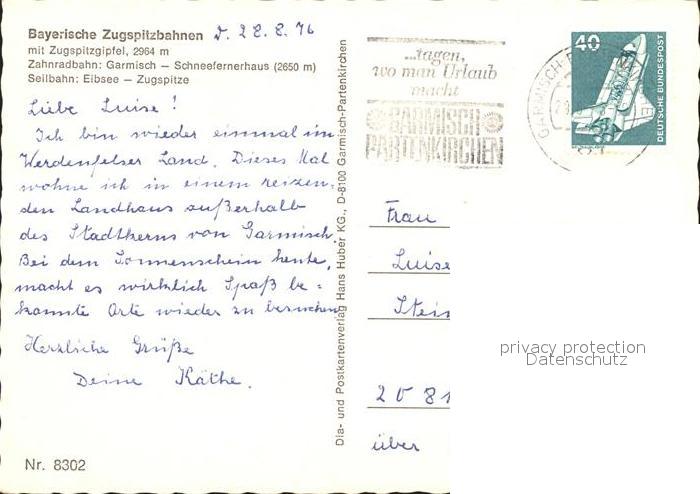 Bayerische Zugspitzbahnen
mit Zugspitzgipfel, 2964 m
Zahnradbahn: Garmisch – Schneefernerhaus (2650 m)
Seilbahn: Eibsee – Zugspitze
d. 28.8.76
Liebe Luise!
Ich bin wieder einmal im
Werdenfelser Land. Dieses Mal
wohne ich in einem reizen-
den Landhaus außerhalb
des Stadtkerns von Garmisch.
Bei dem Sonnenschein heute,
macht es wirklich Spaß be-
kannte Orte wieder zu besuchen.
Herzliche Grüße
Deine Käthe.
Nr. 8302
Dia- und Postkartenverlag Hans Huber KG., D-8100 Garmisch-Partenkirchen
...tagen,
wo man Urlaub
macht
GARMISCH
PARTENKIRCHEN
GARMISCH-P
40
DEUTSCHE BUNDESPOST
Frau
Luise
Stein
2081
über
privacy protection
Datenschutz